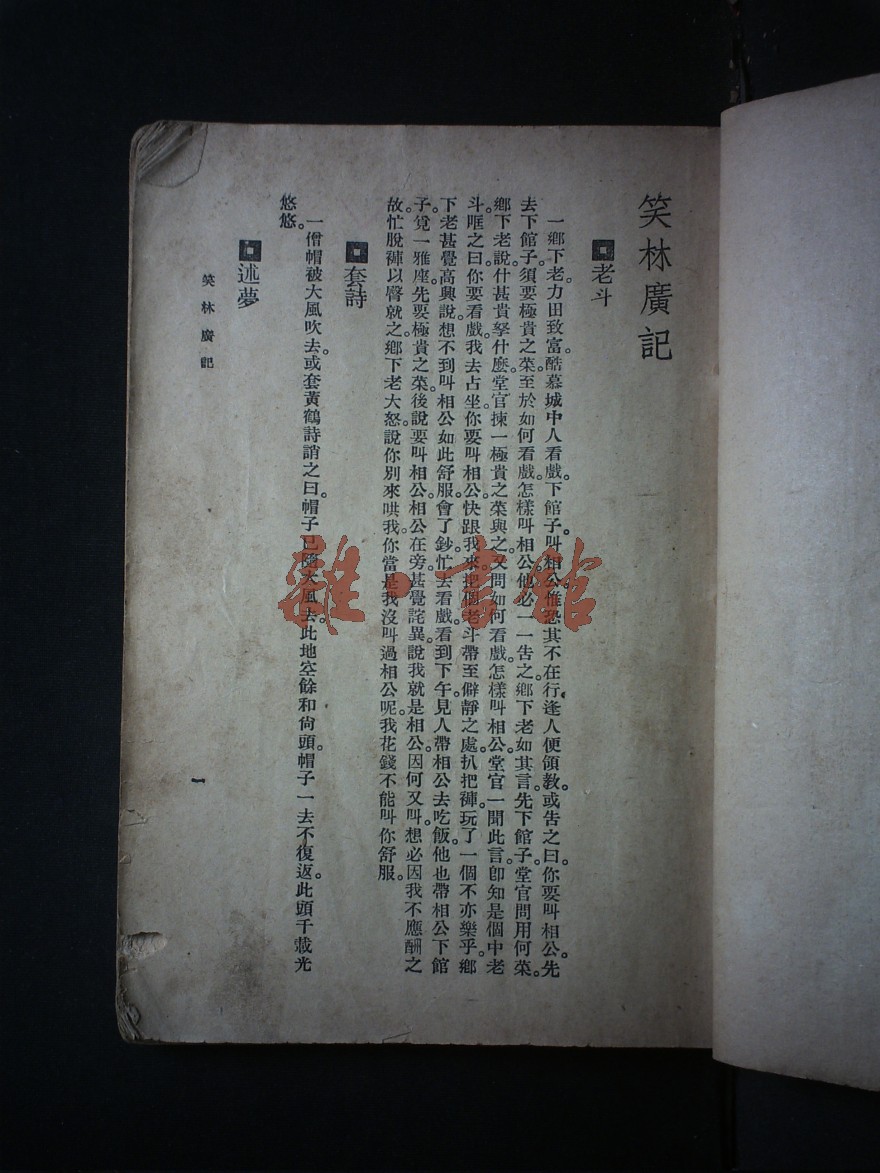 笑林廣記
老斗
一鄉下老。力田致富。酷慕城中人看戲。下館子。叫相公。惟恐其不在行。逢人便領教。或告之曰。你要叫相公。先
去下館子。須要極貴之菜。至於如何看戲。怎樣叫相公。他必一一告之。鄉下老如其言。先下館子。堂官問用何菜。
鄉下老說。什甚貴拏什麼。堂官揀一極貴之菜與之。又問如何看戲。怎樣叫相公。堂官一聞此言。卽知是個中老
斗。哐之曰。你要看戲。我去占坐。你要叫相公。快跟我來。把個老斗帶至僻靜之處。扒把褲。玩了一個不亦樂乎。鄉
下老甚覺高興。說想不到叫相公如此舒服。會了鈔。忙去看戲。看到下午。見人帶相公去吃飯。他也帶相公下館
子。覓一雅座。先要極貴之菜。後說要叫相公。相公在旁。甚覺詫異。說我就是相公。因何又叫。想必因我不應酬之
故。忙脫褲以臀就之。鄉下老大怒說。你別來哄我。你當是我沒叫過相公呢。我花錢不能叫你舒服。
套詩
一僧帽被大風吹去。或套黃鶴詩誚之曰。帽子已隨大風去。此地空餘和尙頭。帽子一去不復返。此頭千載光
悠悠。
述夢
笑林廣記
一
雜·書館